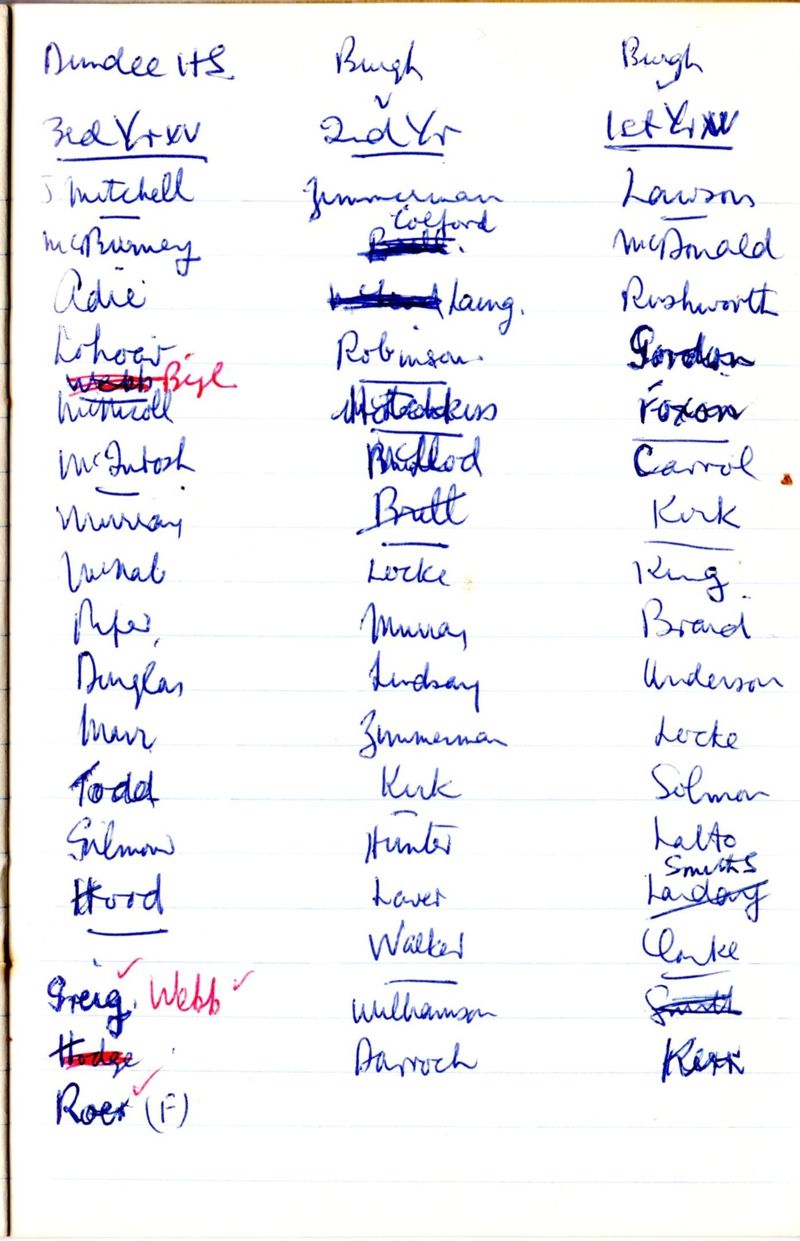 Dundee HS
3rd Yr XV
J Mitchell
McBurney
Adie
Webb Bizl
McIntosh
Murray
McNab
Piper,
Douglas
Muir
Todd
Gilmour
Hood
Greig. Webb
Hodge
Roer (F)
Burgh
2nd Yr
Zimmerman
Colford
Laing.
Robinson
Hotchkiss
McLeod
Brett
Locke
Murray
Lindsay
Zimmerman
Kirk
Hunter
Laver
Walker
Williamson
Darroch
Burgh
1st Yr XV
Lawson
McDonald
Rushworth
Gordon
Foxon
Carrol
Kirk
King
Brand
Anderson
Locke
Solmon
Lalto
Smith S
Clarke
Smith
Kerr